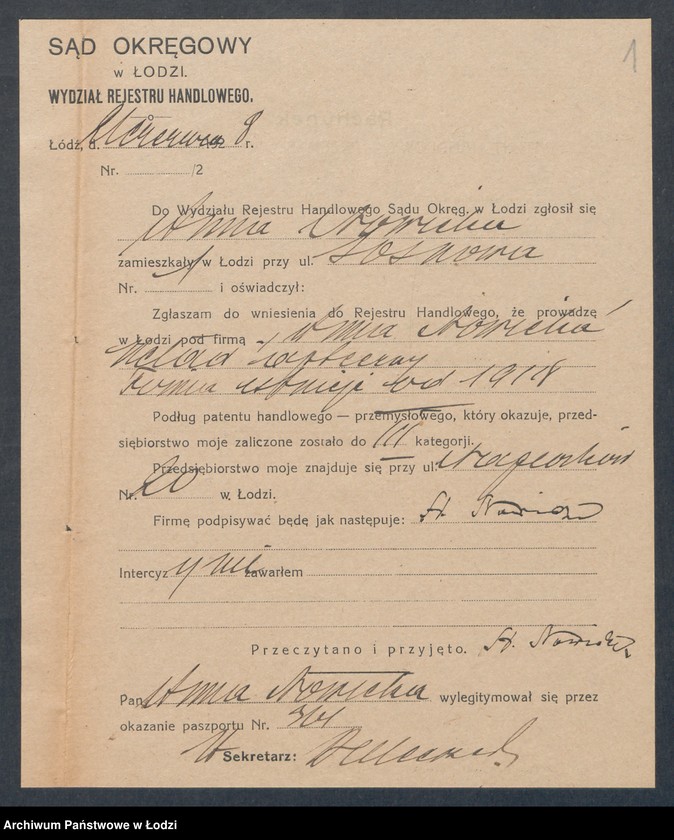 SĄD OKRĘGOWY
w ŁODZI.
WYDZIAŁ REJESTRU HANDLOWEGO.
1
Łódź, d. czerwca 192 8 r.
Nr. /2
Do Wydziału Rejestru Handlowego Sądu Okręg. w Łodzi zgłosił się
Anna Nowicka
zamieszkały w Łodzi przy ul. Sosnowa
Nr. i oświadczył:
Zgłaszam do wniesienia do Rejestru Handlowego, że prowadzę
w Łodzi pod firmą Anna Nowicka
skład apteczny
Firma istnieje od 1918
Podług patentu handlowego — przemysłowego, który okazuje, przed-
siębiorstwo moje zaliczone zostało do III kategorji.
Przedsiębiorstwo moje znajduje się przy ul.
Nr. 20 w Łodzi.
Firmę podpisywać będę jak następuje: A. Nowicka
Intercyzy nie zawarłem
Przeczytano i przyjęto. A. Nowicka
Pan Anna Nowicka wylegitymował się przez
okazanie paszportu Nr.
Sekretarz:
Archiwum Państwowe w Łodzi